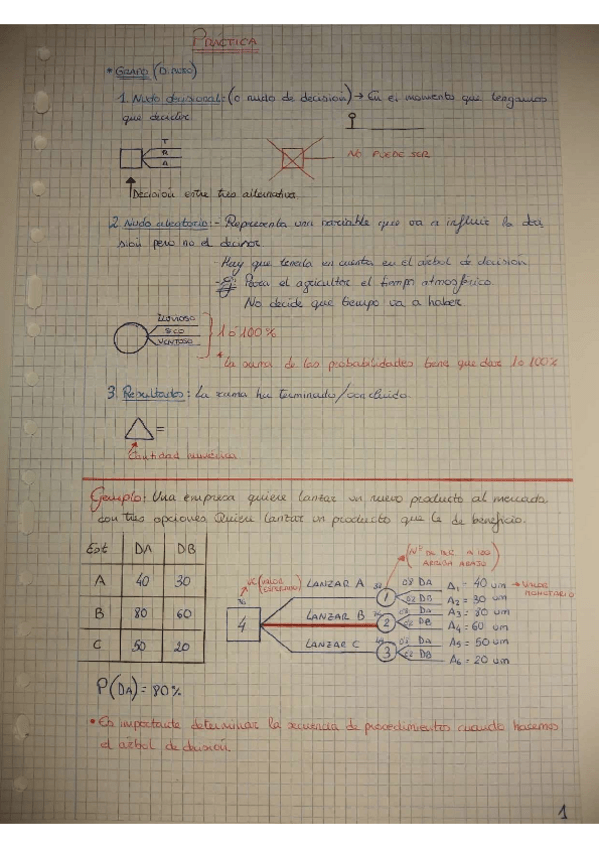 PRÁCTICA
* GRAFO (DIBUJO)
1. Nudo decisional: (o nudo de decisión) → En el momento que tengamos
que decidir.
T
R
A
NO PUEDE SER
Decisión entre tres alternativas
2. Nudo aleatorio: - Representa una variable que va a influir la deci
sión pero no el decisor
- Hay que tenerla en cuenta en el árbol de decisión
- Ej: Para el agricultor el tiempo atmosférico.
No decide que tiempo va a haber.
LLUVIOSO
SECO
VENTOSO
1 ó 100%
* La suma de las probabilidades tiene que dar 1 o 100%
3. Resultados: La rama ha terminado/concluido.
=
Cantidad numérica
Ejemplo: Una empresa quiere lanzar un nuevo producto al mercado
con tres opciones. Quiere lanzar un producto que le de beneficio.
Est DA DB
A 40 30
B 80 60
C 50 20
VE (VALOR ESPERADO)
76
4
(Nº DE IZQ.
ARRIBA ABAJO)
LANZAR A 38 1 0'8 DA A1 = 40 um → VALOR
0'2 DB A2 = 30 um MONETARIO
LANZAR B 76 2 0'8 DA A3 = 80 um
0'2 DB A4 = 60 um
LANZAR C 44 3 0'8 DA A5 = 50 um
0'2 DB A6 = 20 um
P(DA) = 80%
* Es importante determinar la secuencia de procedimientos cuando hacemos
el árbol de decisión.
1